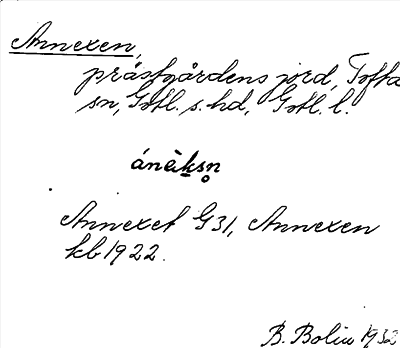 Annexen,
prästgårdens jord, Tofta
sn, Gotl. s. hd, Gotl. l.
ánèksn̥
Annexet G31, Annexen
kb 1922.
B. Bolin 1932